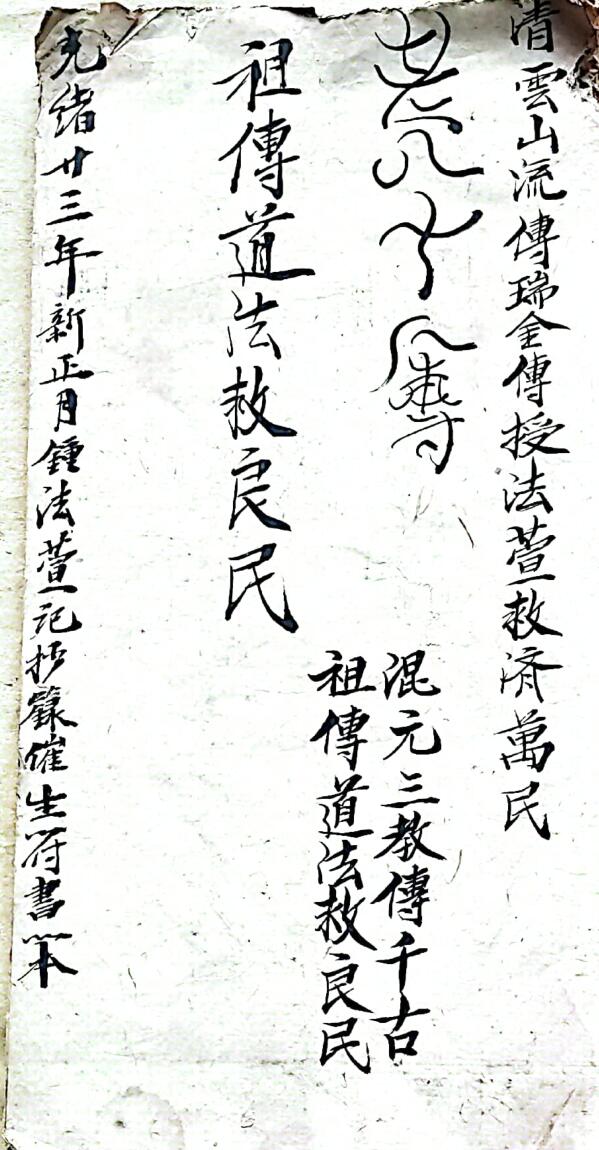 清雲山流傳瑞金傳授法萱救濟萬民
混元三教傳千古
祖傳道法救良民
祖傳道法救良民
光緒廿三年新正月鍾法萱記抄錄催生符書一本